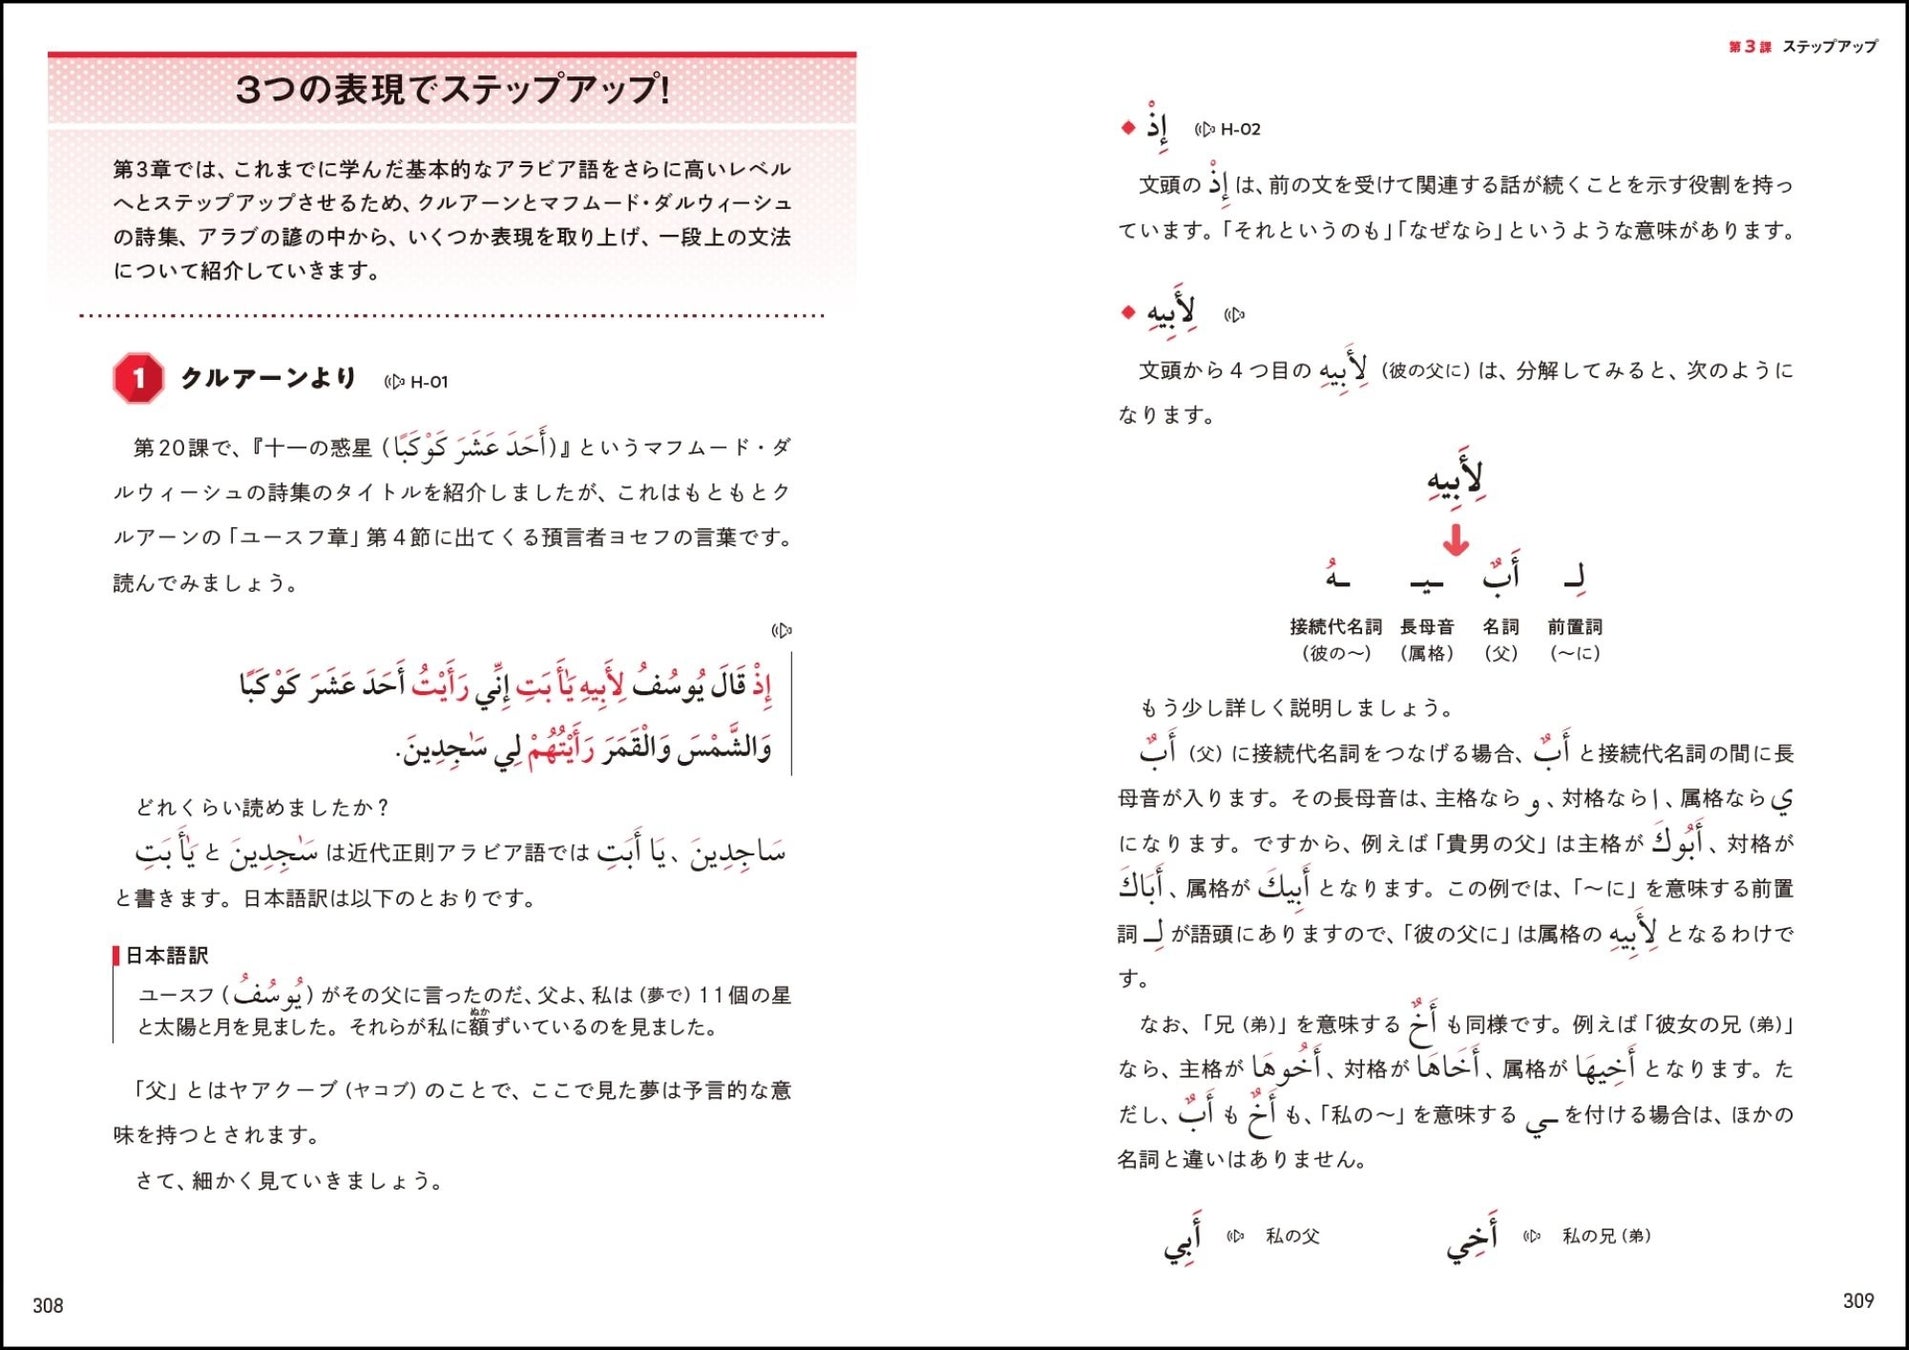 3つの表現でステップアップ!
第3章では、これまでに学んだ基本的なアラビア語をさらに高いレベル
へとステップアップさせるため、クルアーンとマフムード・ダルウィーシュ
の詩集、アラブの諺の中から、いくつか表現を取り上げ、一段上の文法
について紹介していきます。
1 クルアーンより H-01
第20課で、『十一の惑星(أَحَدَ عَشَرَ كَوْكَبًا)』というマフムード・ダ
ルウィーシュの詩集のタイトルを紹介しましたが、これはもともとク
ルアーンの「ユースフ章」第4節に出てくる預言者ヨセフの言葉です。
読んでみましょう。
إِذْ قَالَ يُوسُفُ لِأَبِيهِ يَٰٓأَبَتِ إِنِّي رَأَيْتُ أَحَدَ عَشَرَ كَوْكَبًا
وَالشَّمْسَ وَالْقَمَرَ رَأَيْتُهُمْ لِي سَٰجِدِينَ.
どれくらい読めましたか?
يَٰٓأَبَتِ と سَٰجِدِينَ は近代正則アラビア語では يَا أَبَتِ、سَاجِدِينَ
と書きます。日本語訳は以下のとおりです。
日本語訳
ユースフ(يُوسُفُ)がその父に言ったのだ、父よ、私は(夢で)11個の星
ぬか
と太陽と月を見ました。それらが私に額ずいているのを見ました。
「父」とはヤアクーブ(ヤコブ)のことで、ここで見た夢は予言的な意
味を持つとされます。
さて、細かく見ていきましょう。
308
第3課 ステップアップ
◆ إِذْ H-02
文頭の إِذْ は、前の文を受けて関連する話が続くことを示す役割を持っ
ています。「それというのも」「なぜなら」というような意味があります。
◆ لِأَبِيهِ
文頭から4つ目の لِأَبِيهِ(彼の父に)は、分解してみると、次のように
なります。
لِأَبِيهِ
ـهُ ـيـ أَبٌ لِـ
接続代名詞 長母音 名詞 前置詞
(彼の〜) (属格) (父) (〜に)
もう少し詳しく説明しましょう。
أَبٌ(父)に接続代名詞をつなげる場合、أَبٌ と接続代名詞の間に長
母音が入ります。その長母音は、主格なら و、対格なら ا、属格なら ي
になります。ですから、例えば「貴男の父」は主格が أَبُوكَ、対格が
أَبَاكَ、属格が أَبِيكَ となります。この例では、「〜に」を意味する前置
詞 لِـ が語頭にありますので、「彼の父に」は属格の لِأَبِيهِ となるわけで
す。
なお、「兄(弟)」を意味する أَخٌ も同様です。例えば「彼女の兄(弟)」
なら、主格が أَخُوهَا、対格が أَخَاهَا、属格が أَخِيهَا となります。た
だし、أَبٌ も أَخٌ も、「私の〜」を意味する ـي を付ける場合は、ほかの
名詞と違いはありません。
أَبِي 私の父 أَخِي 私の兄(弟)
309